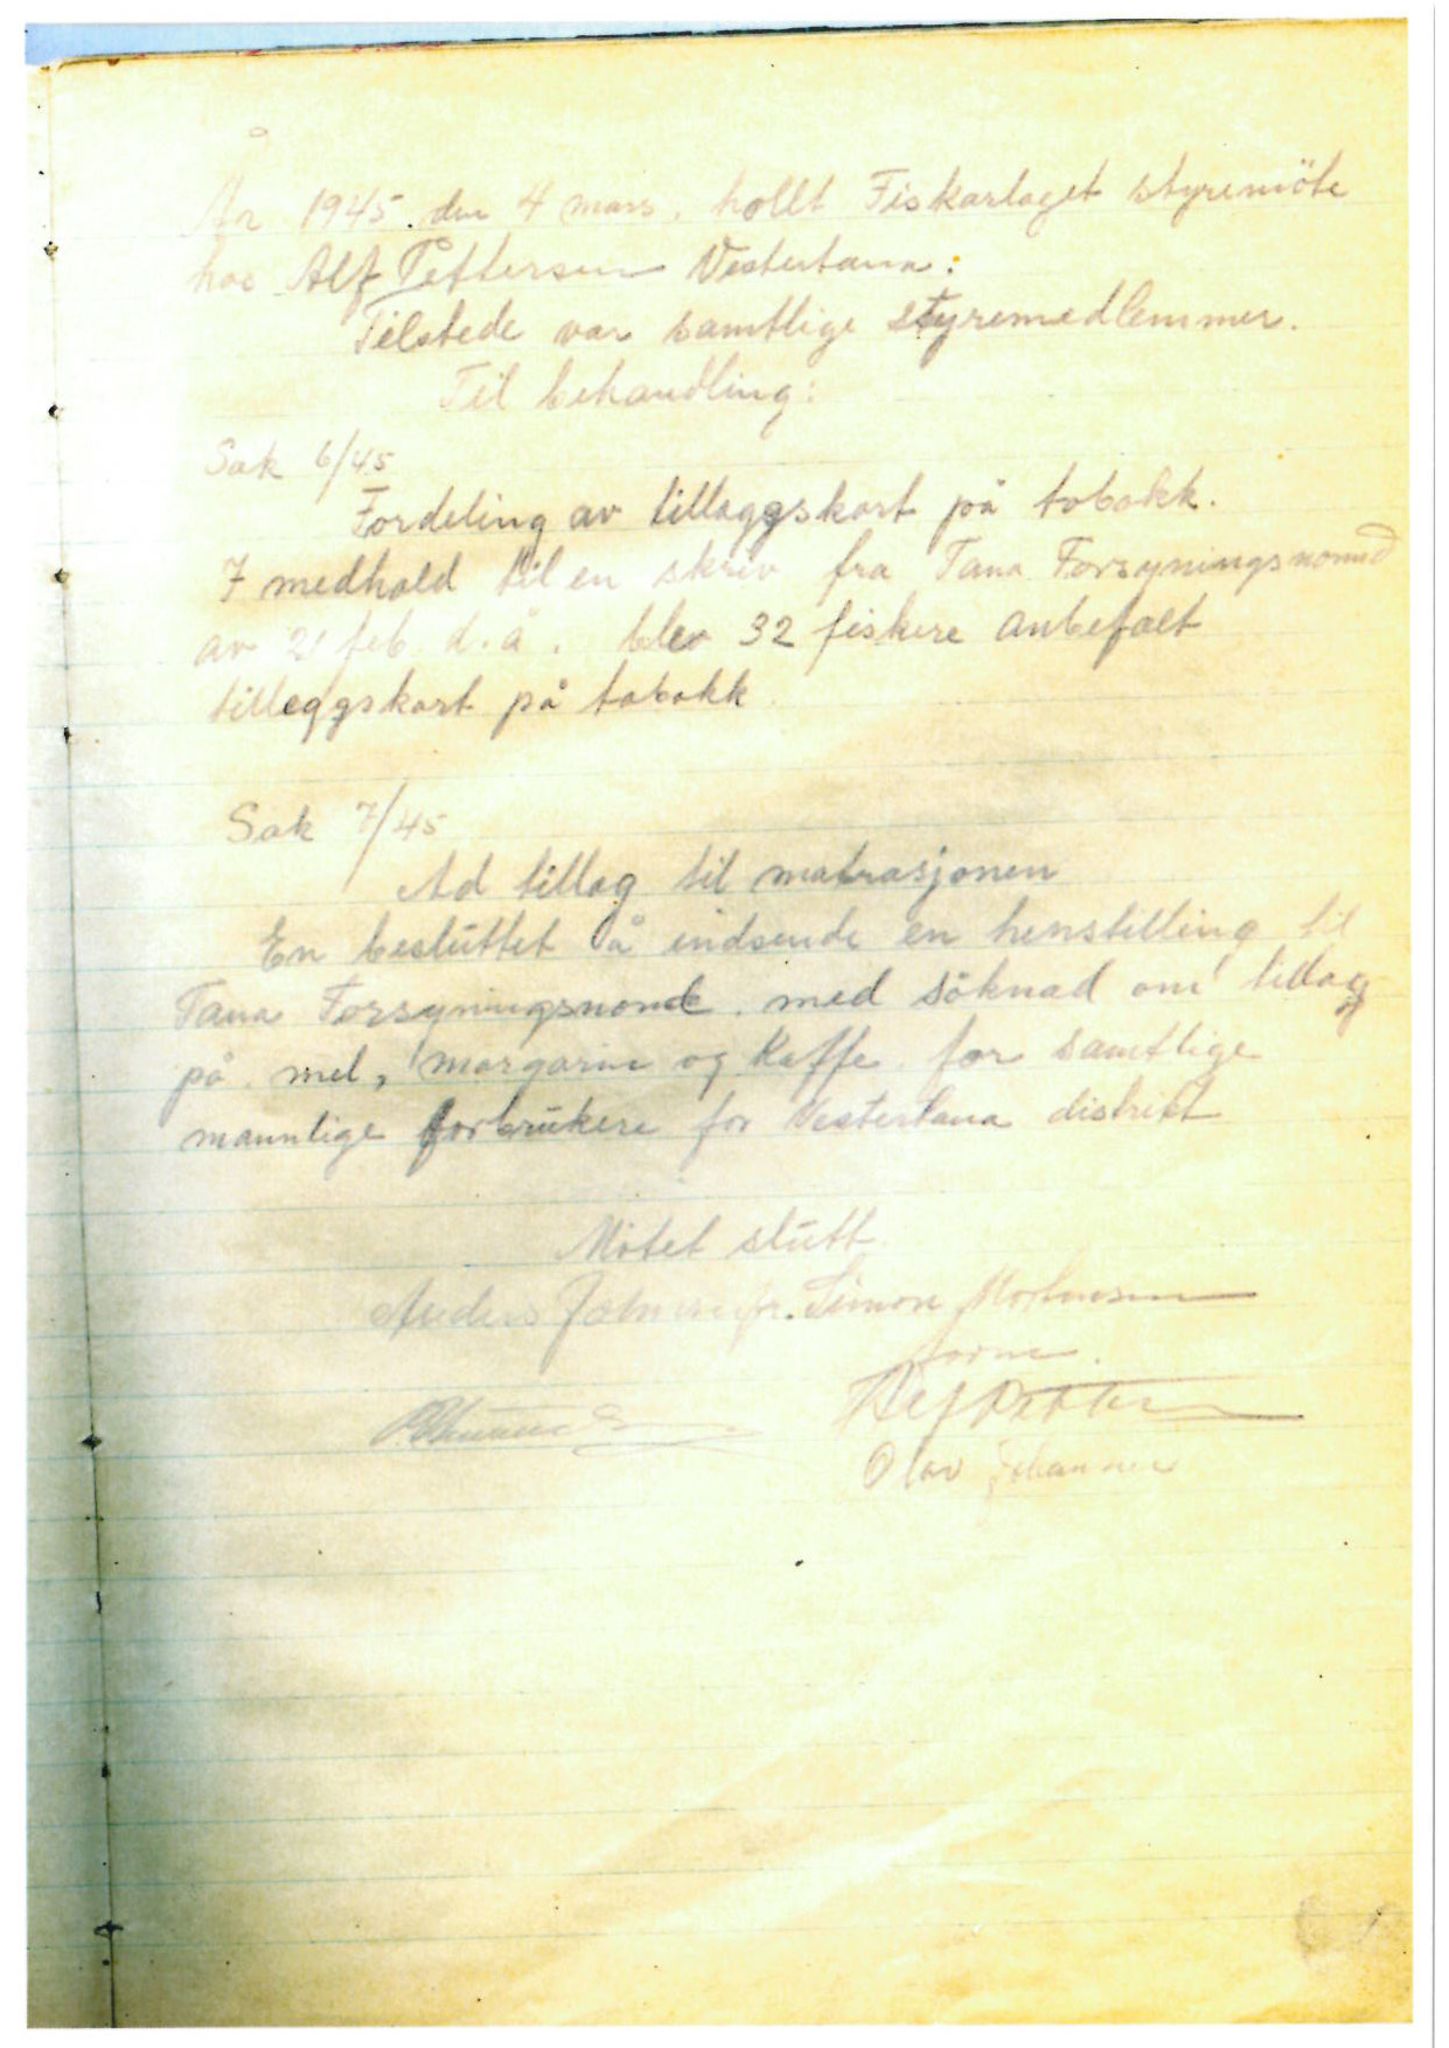 År 1945 den 4 mars. hollt Fiskarlaget styremöte
hos Alf Pettersen Vestertana:
Tilstede var samtlige styremedlemmer.
Til behandling:
Sak 6/45
Fordeling av tillaggskort på tobakk.
I medhold til en skriv fra Tana Forsyningsnomnd
av 21 feb. d.å. blev 32 fiskere anbefalt
tilleggskort på tobakk.
Sak 7/45
Ad tillag til matrasjonen
En besluttet å indsende en henstilling til
Tana Forsyningsnomd. med söknad om tillag
på mel, margarin og Kaffe for samtlige
mannlige forbrukere for Vestertana distrikt
Mötet slutt
Anders Johnsen jr. Simon Mortensen
form.
Alf Petter
Olav Johannes